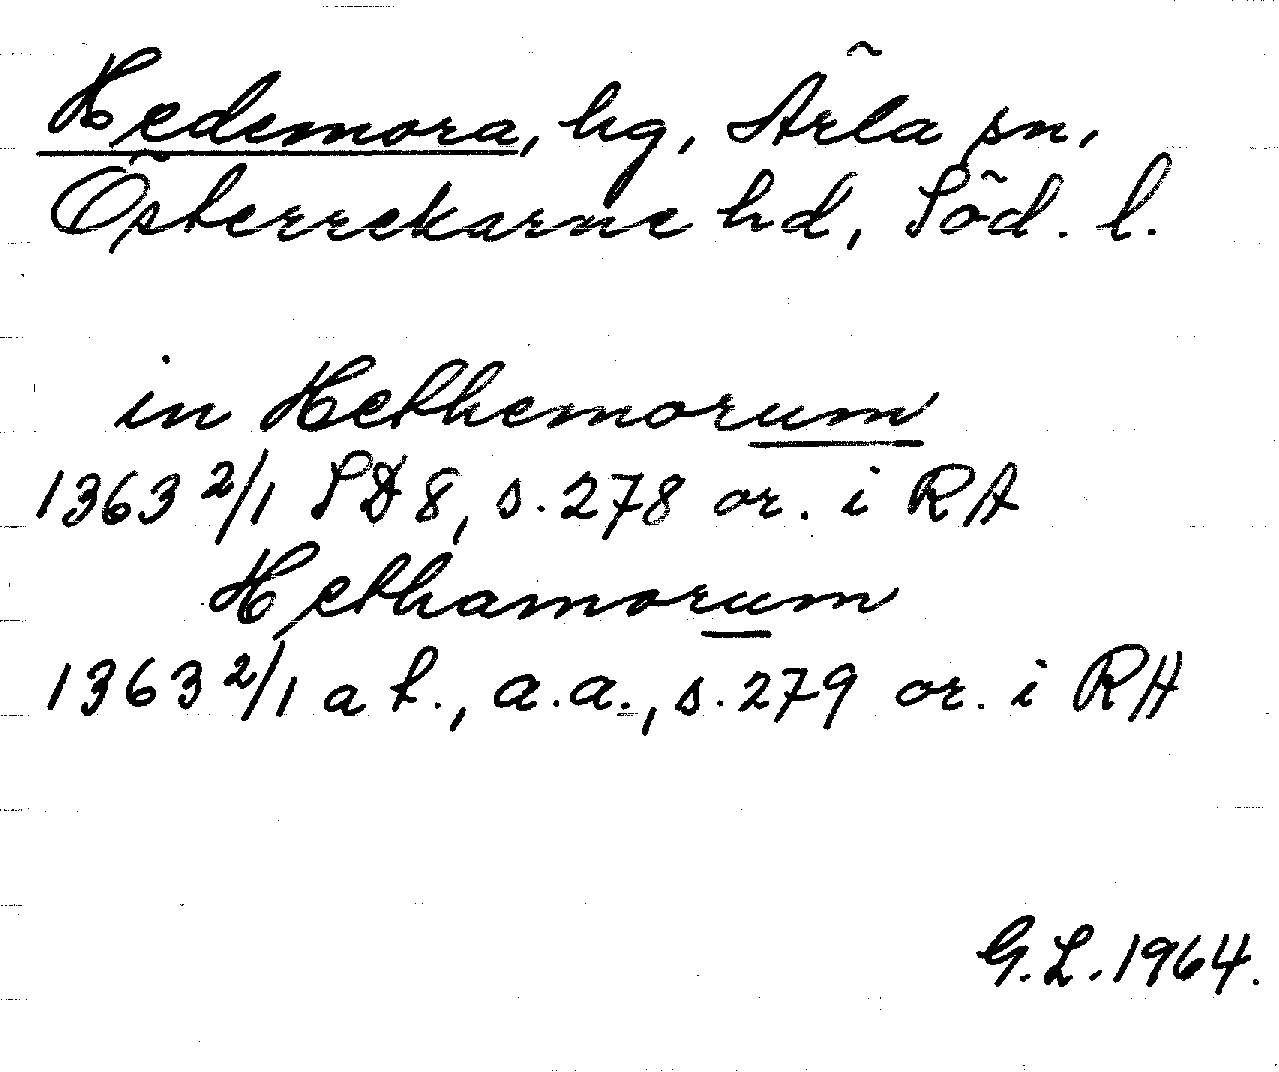 Hedemora, hg, Ärla sn,
Österrekarne hd, Söd. l.
in Hethemorum
1363 2/1 SD 8, s. 278 or. i RA
Hethamorum
1363 2/1 a t., a.a., s. 279 or. i RA
G.L. 1964.